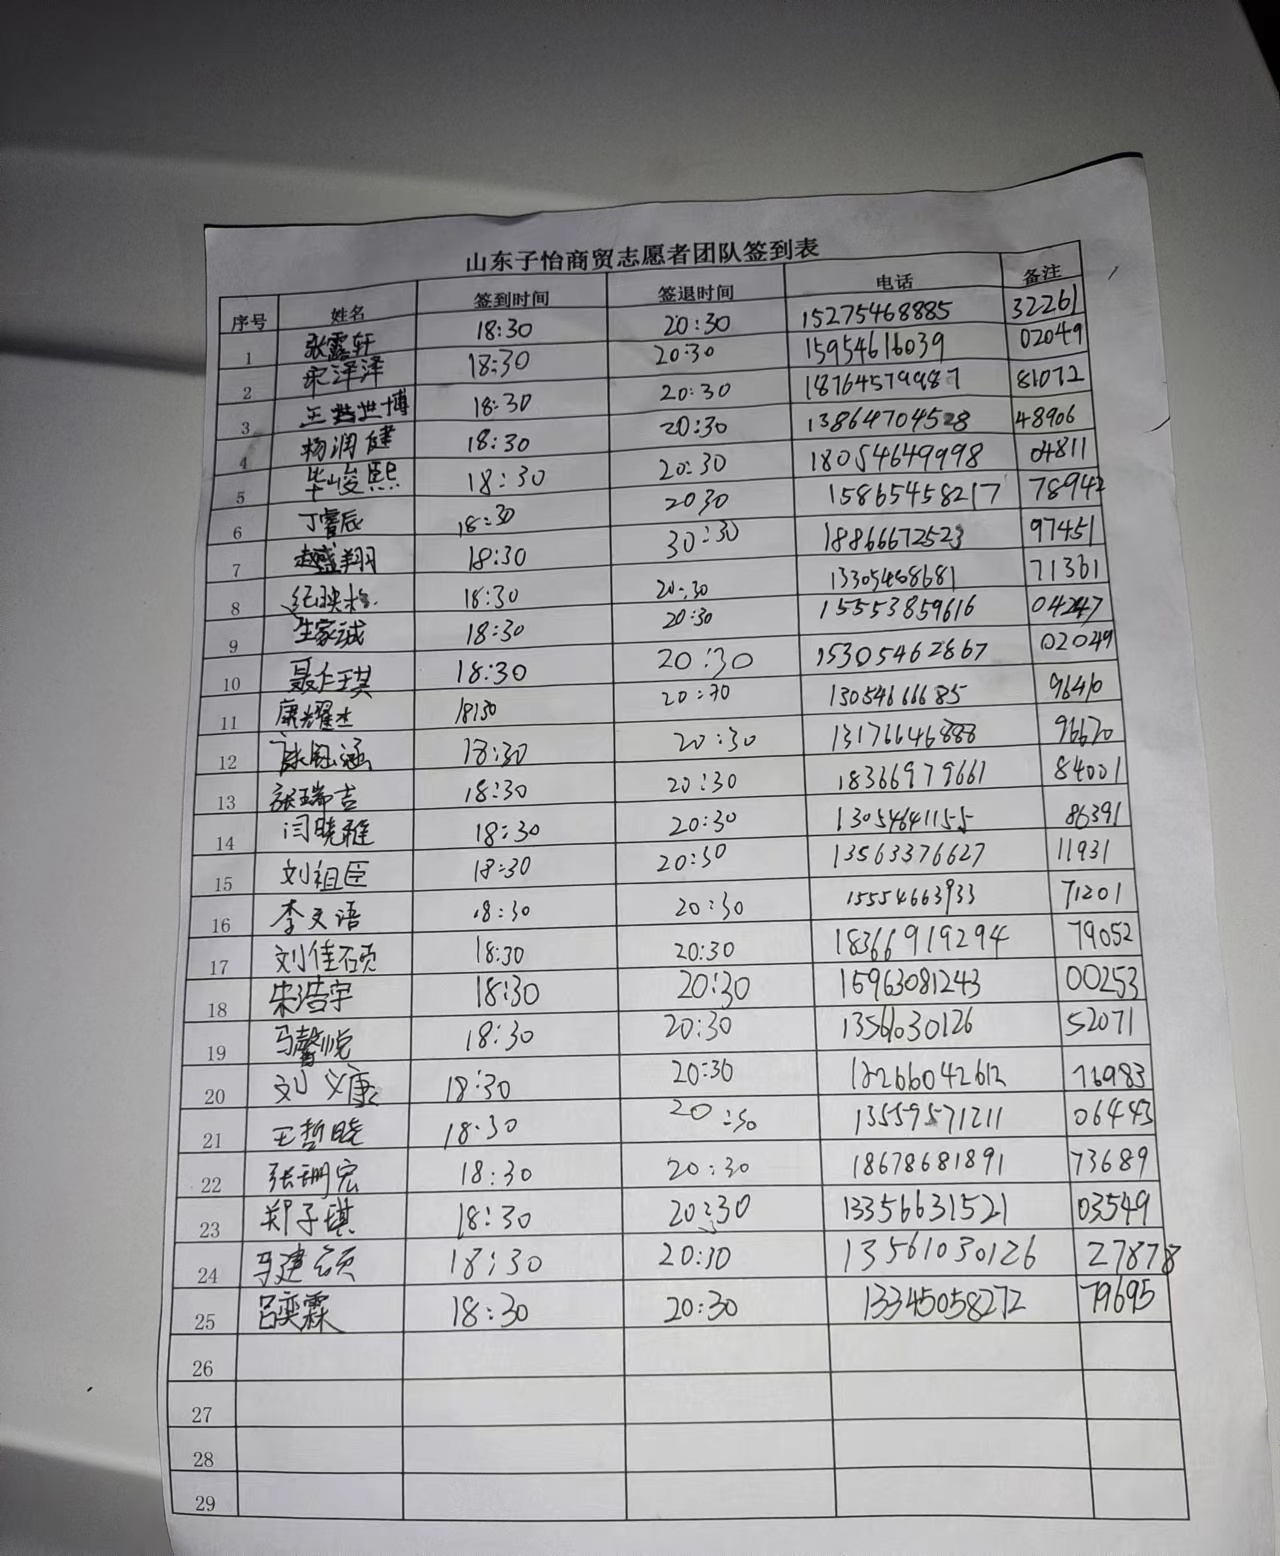 山东子怡商贸志愿者团队签到表
序号 姓名 签到时间 签退时间 电话 备注
1 张露轩 18:30 20:30 15275468885 32261
2 宋洋泽 18:30 20:30 15954616039 02049
3 18:30 20:30 18764579987 81072
4 杨润健 18:30 20:30 13864704528 48906
5 毕峻熙 18:30 20:30 18054649998 04811
6 丁睿辰 18:30 2030 15865458217 78942
7 赵盛翔 18:30 30:30 18866672523 97451
8 18:30 20:30 13305468681 71361
9 生家诚 18:30 20:30 15553859616 04247
10 聂仁琪 18:30 20:30 15305462867 02049
11 康耀杰 18:30 20:30 13054666685 96410
12 康钰涵 18:30 20:30 13176646888 96670
13 张瑞吉 18:30 20:30 18366979661 84001
14 闫晓雅 18:30 20:30 13054641155 86391
15 刘祖臣 18:30 20:30 13563376627 11931
16 李文语 18:30 20:30 15554663933 71201
17 刘佳硕 18:30 20:30 18366919294 79052
18 朱浩宇 18:30 20:30 15963081243 00253
19 马馨悦 18:30 20:30 52071
20 刘义康 18:30 20:30 76983
21 王哲晓 18:30 20:30 13559571211 06443
22 张珊宏 18:30 20:30 18678681891 73689
23 郑子琪 18:30 20:30 13356631521 03549
24 马建硕 18:30 20:30 13561030126 27878
25 吕奕霖 18:30 20:30 13345058272 79695
26
27
28
29